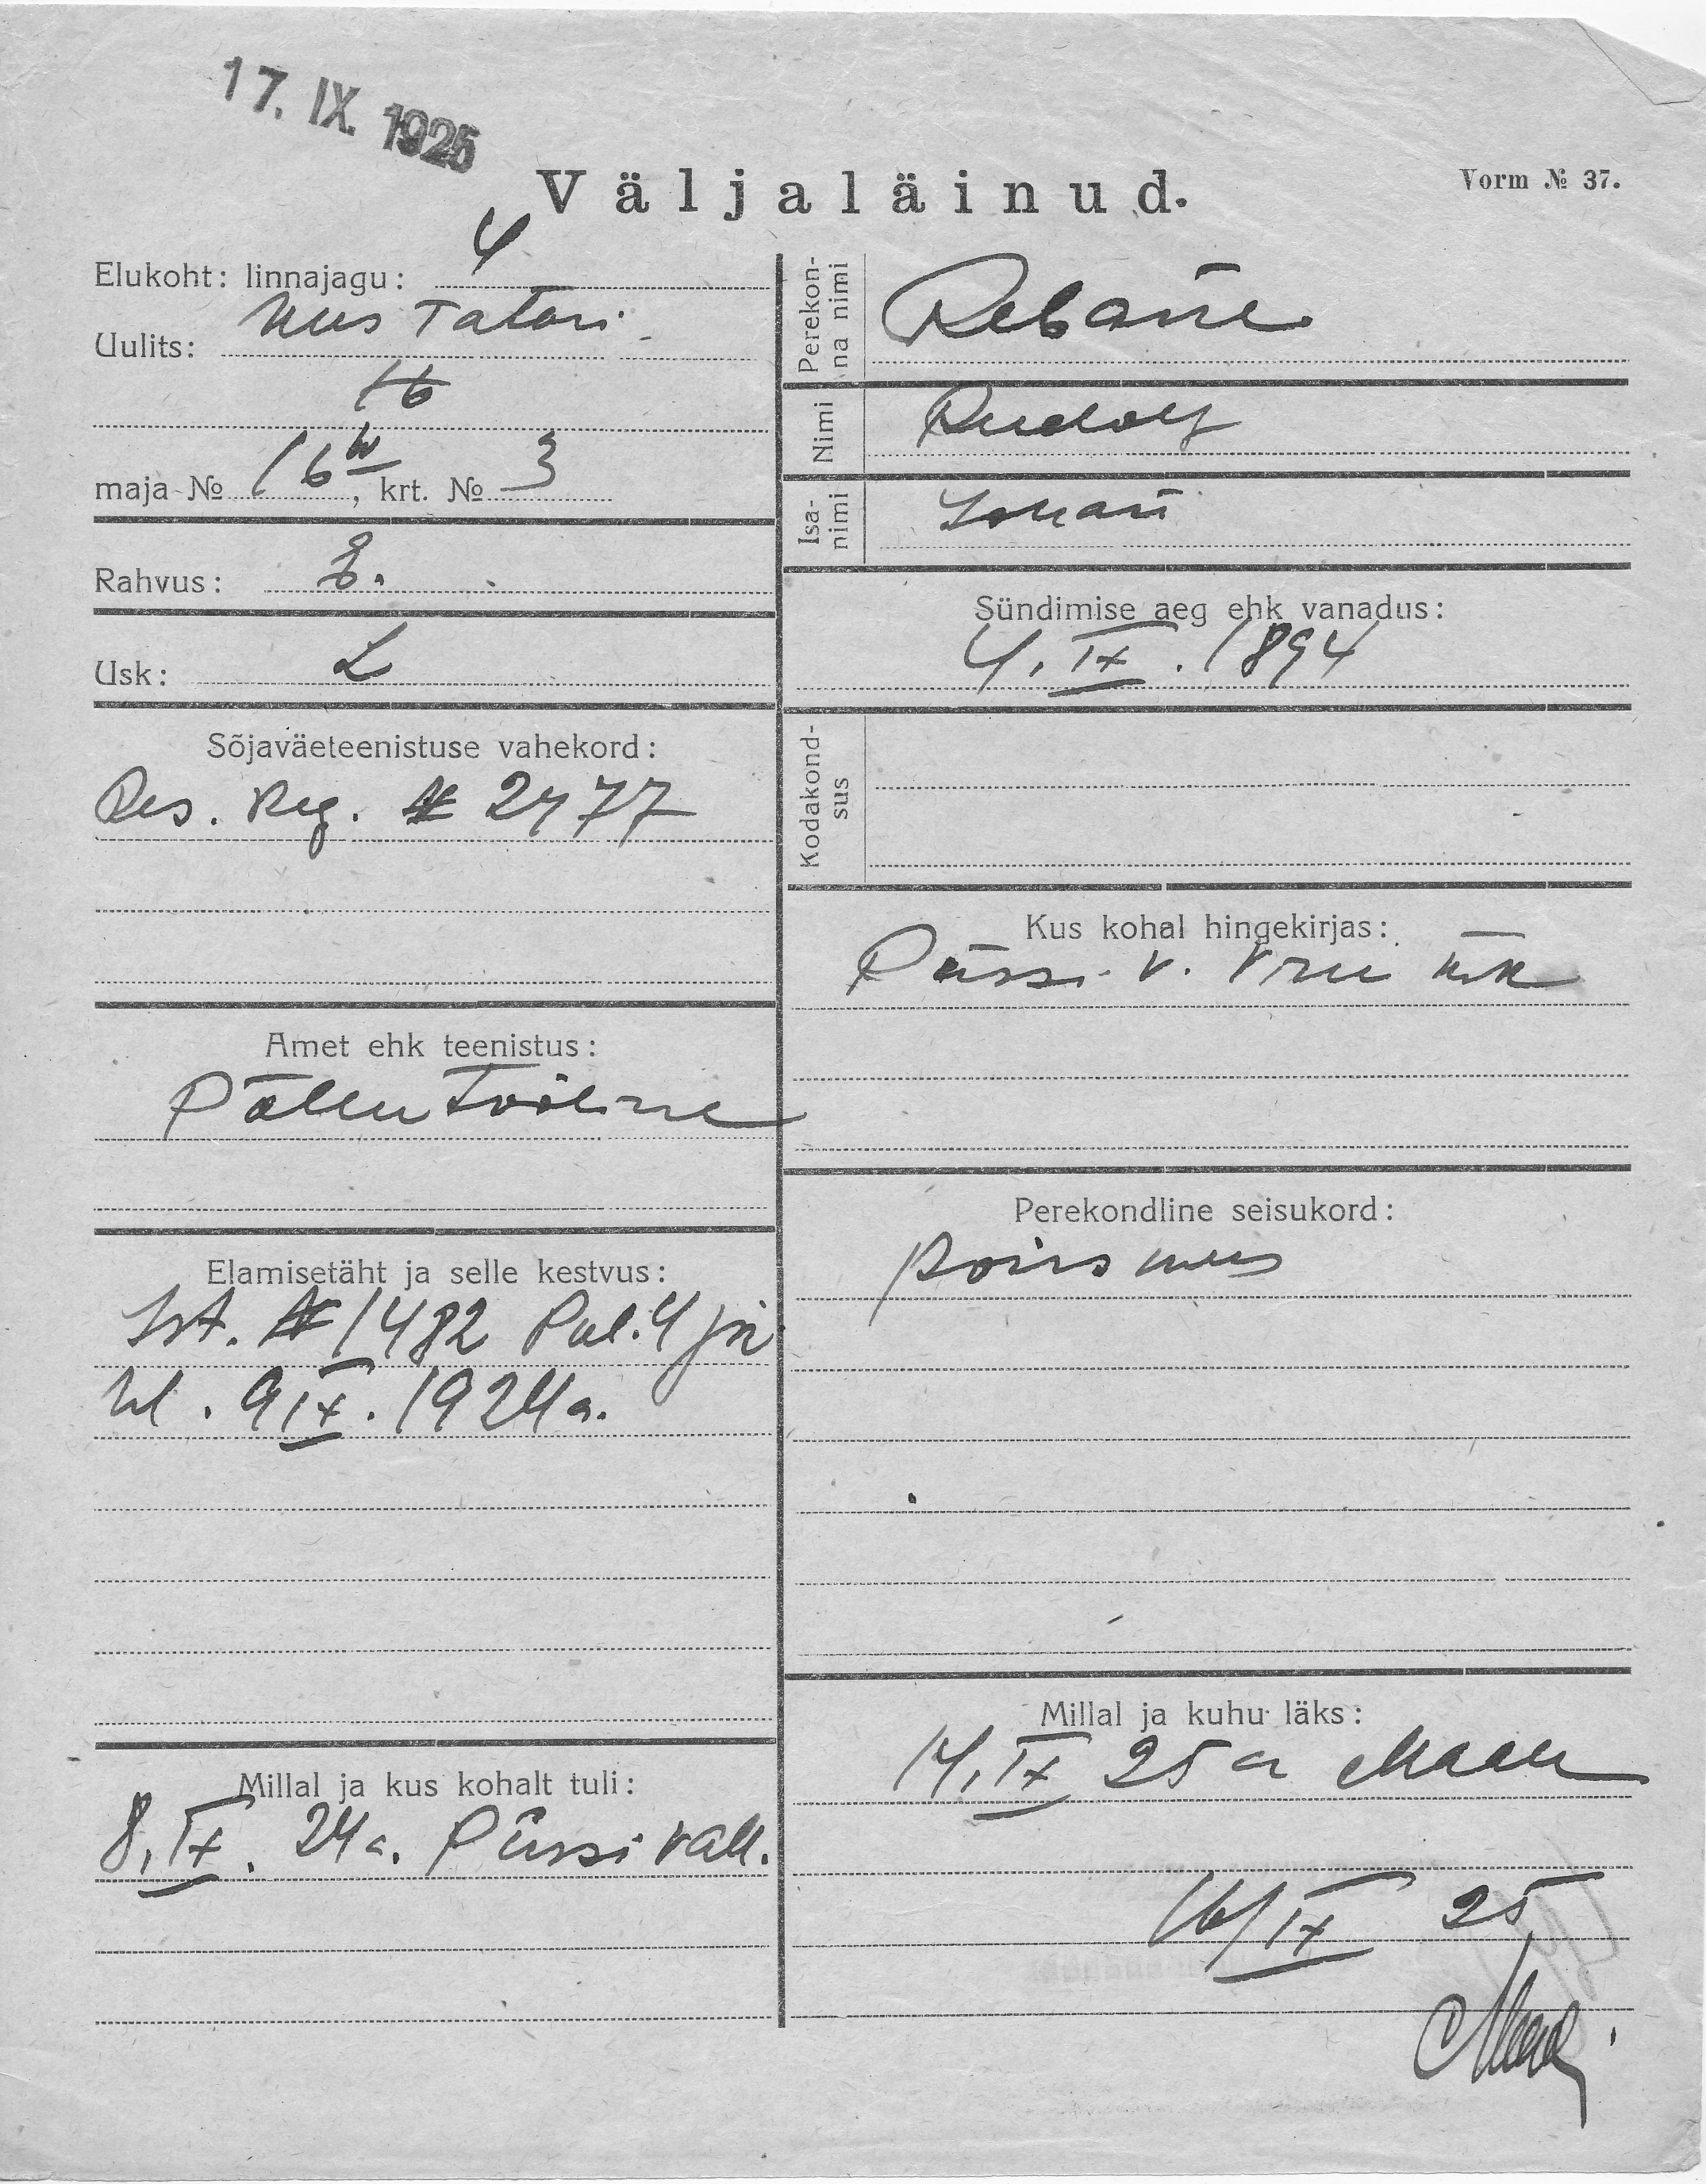 17. IX. 1925
Väljaläinud.
Vorm № 37.
Elukoht: linnajagu: 4
Uulits: Uus Tatari
16
maja № 16 , krt. № 3
Rahvus: E.
Usk: L
Sõjaväeteenistuse vahekord:
Res. Reg. № 2477
Amet ehk teenistus:
Põllu Tööline
Elamisetäht ja selle kestvus:
Ist. № 1482 Pol. 4 js
wl. 9 IX. 1924 a.
Millal ja kus kohalt tuli:
8. IX. 24 a. Püssi vall.
Perekon-
na nimi Rebane
Nimi Rudolf
Isa-
nimi Johan
Sündimise aeg ehk vanadus:
4. IX. 1894
Kodakond-
sus
Kus kohal hingekirjas:
Püssi v. Viru
Perekondline seisukord:
Poissmees
Millal ja kuhu läks:
14. IX 25 a Maale
16/IX 25